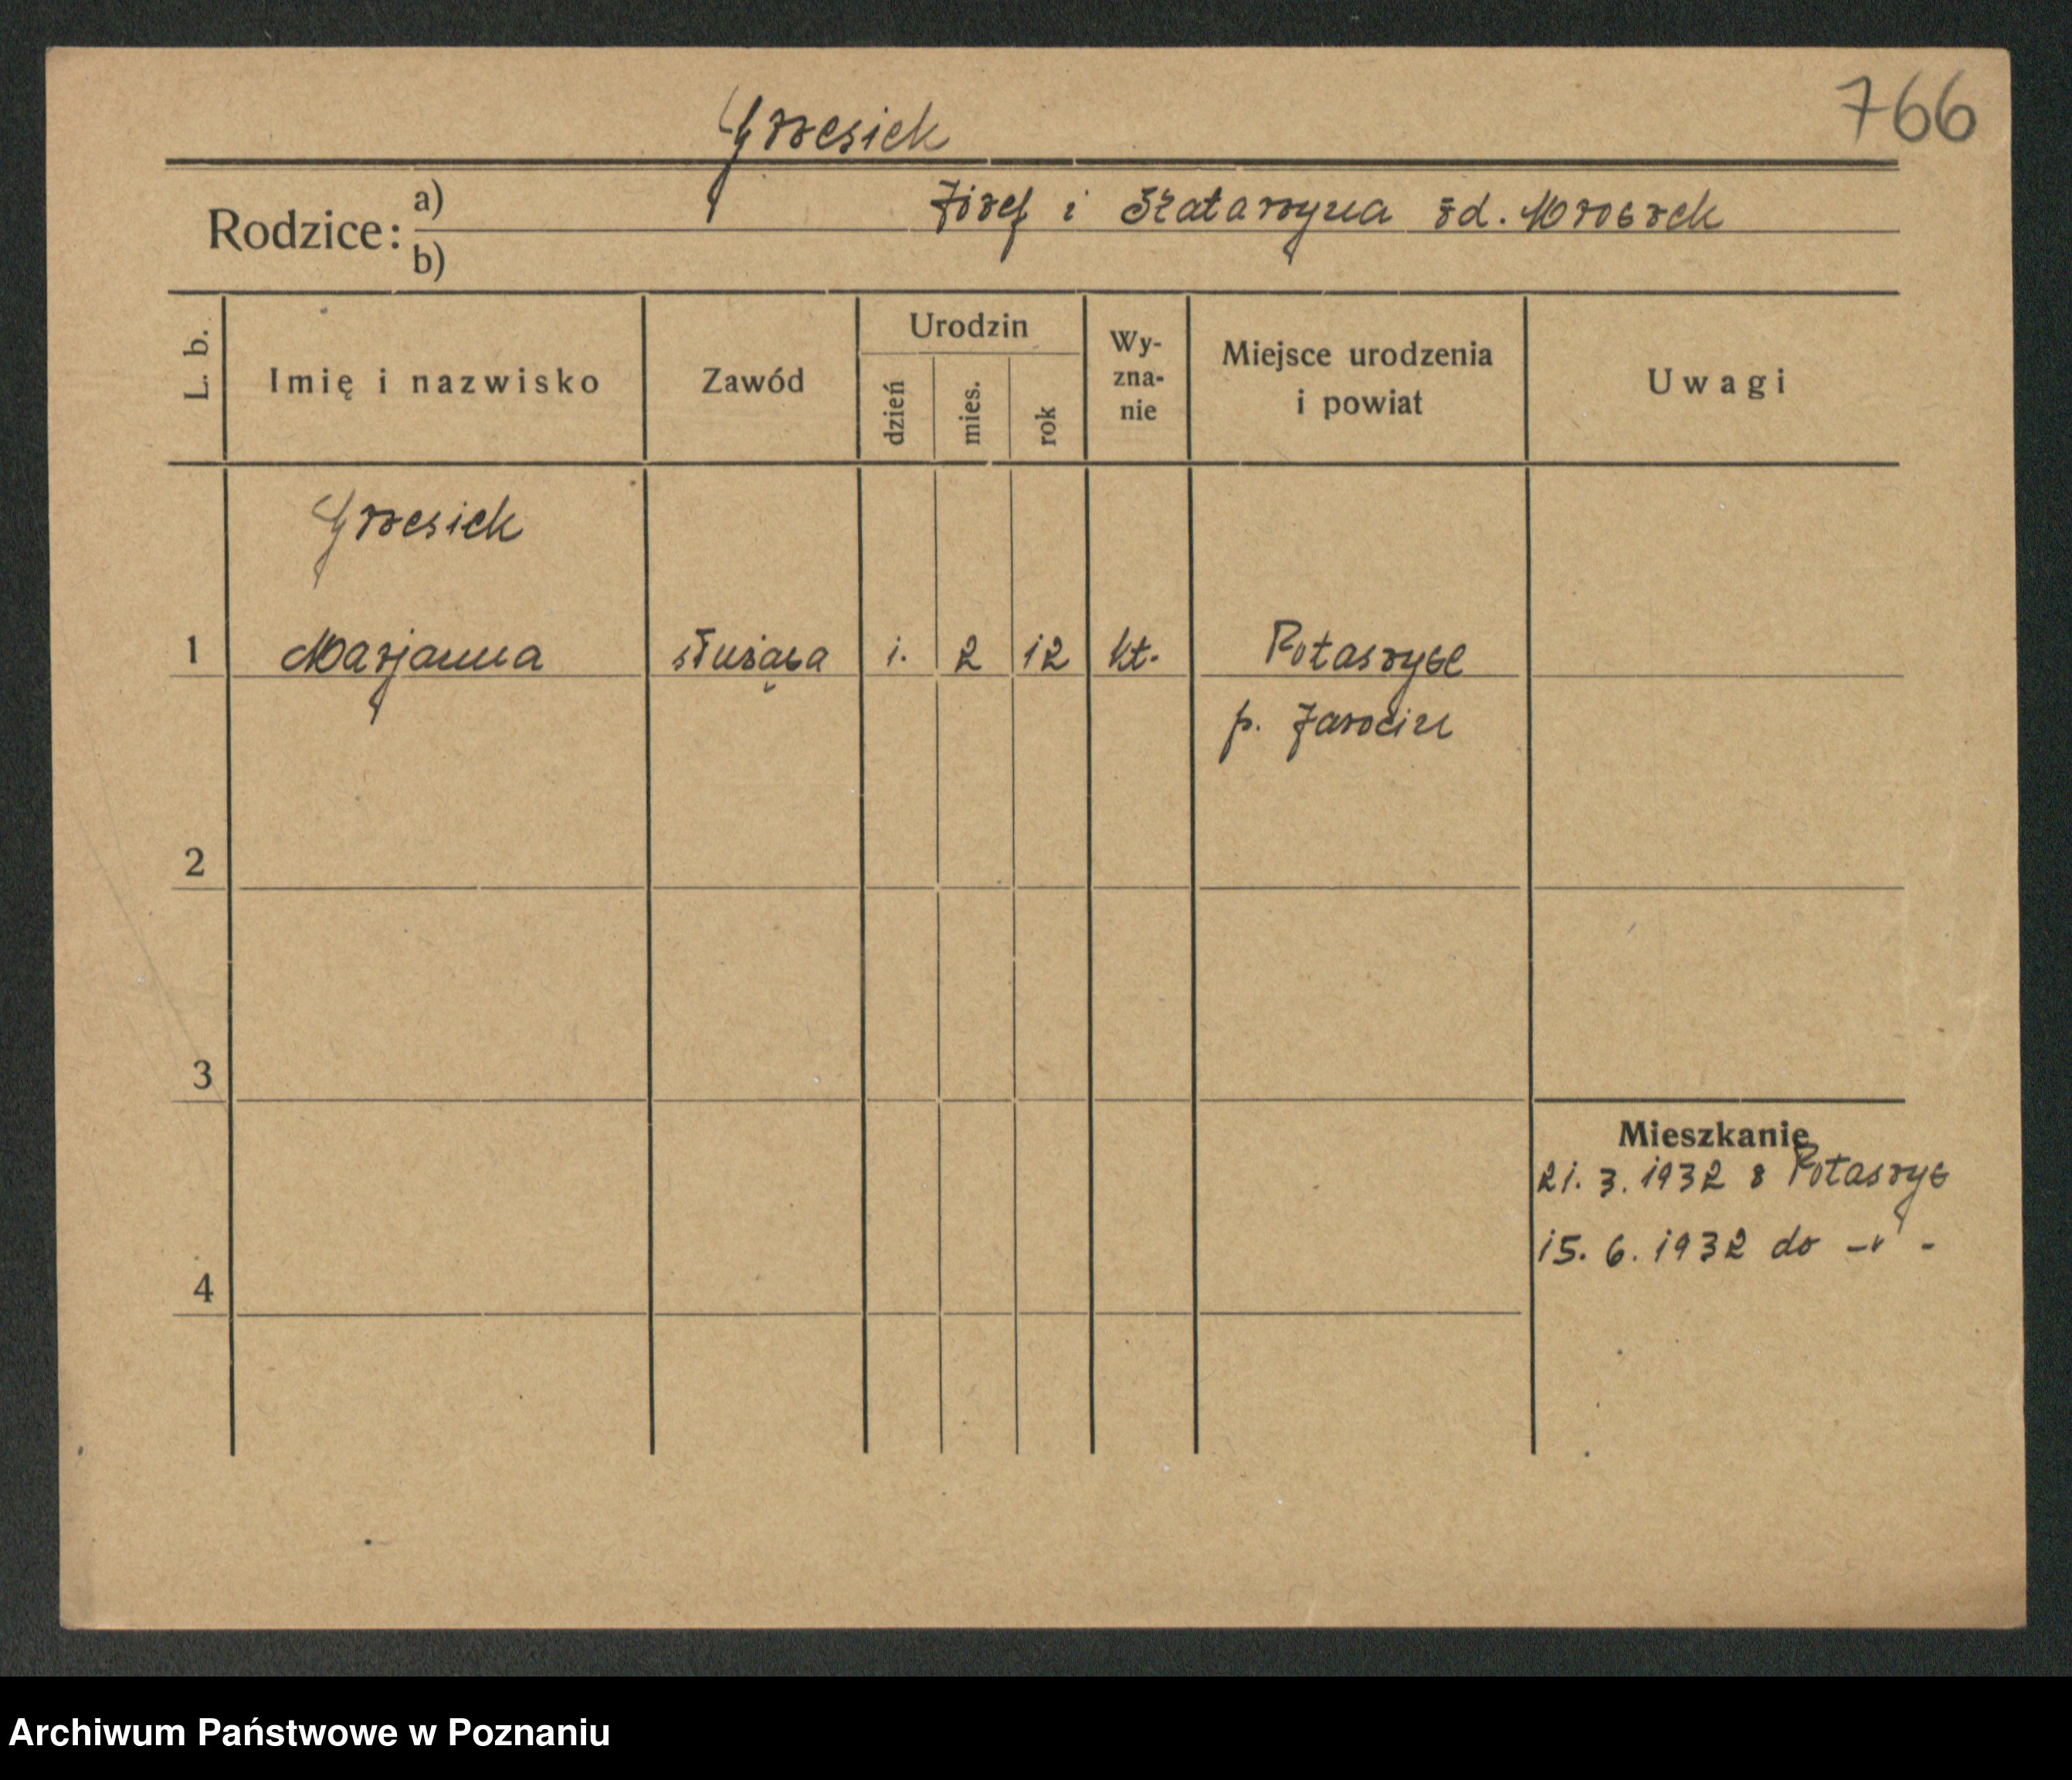 766
Grzesiek
Rodzice: a) Józef i Katarzyna zd. Mroczek
b)
L. b.
Imię i nazwisko
Zawód
Urodzin
dzień
mies.
rok
Wy-
zna-
nie
Miejsce urodzenia
i powiat
Uwagi
Grzesiek
1 Marjanna służąca 1. 2 12 kt. Potarzyce
p. Jarocin
2
3
Mieszkanie
21. 3. 1932 z Potarzyc
15. 6. 1932 do -"-
4
Archiwum Państwowe w Poznaniu